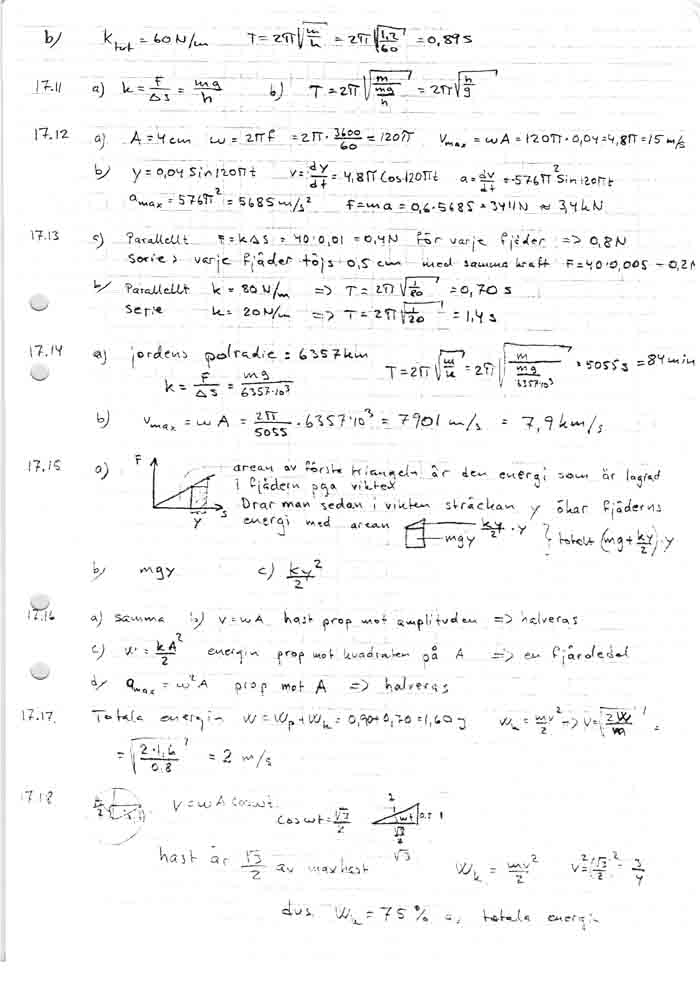 b) k_tot = 60 N/m   T = 2π√(m/k) = 2π√(1,2/60) = 0,89 s
17.11 a) k = F/Δs = mg/h   b) T = 2π√(m/(mg/h)) = 2π√(h/g)
17.12 a) A = 4 cm   ω = 2πf = 2π·3600/60 = 120π   v_max = ωA = 120π·0,04 = 4,8π = 15 m/s
b) y = 0,04 Sin 120πt   v = dy/dt = 4,8π Cos 120πt   a = dv/dt = -576π² Sin 120πt
a_max = 576π² = 5685 m/s²   F = ma = 0,6·5685 = 3411 N ≈ 3,4 kN
17.13 a) Parallellt F = kΔs = 40·0,01 = 0,4 N för varje fjäder => 0,8 N
Serie varje fjäder töjs 0,5 cm med samma kraft F = 40·0,005 = 0,2
b) Parallellt k = 80 N/m => T = 2π√(1/80) = 0,70 s
Serie k = 20 N/m => T = 2π√(1/20) = 1,4 s
17.14 a) jordens polradie = 6357 km   T = 2π√(m/k) = 2π√(m/(mg/6357·10³)) = 5055 s = 84 min
k = F/Δs = mg/6357·10³
b) v_max = ωA = 2π/5055 · 6357·10³ = 7901 m/s = 7,9 km/s
17.15 a) F s y
arean av första triangeln är den energi som är lagrad
i fjädern pga vikten
Drar man sedan i vikten sträckan y ökar fjäderns
energi med arean   ky/2 · y   mgy   } totalt (mg + ky/2)·y
b) mgy   c) ky²/2
17.16 a) samma b) v = ωA hast prop mot amplituden => halveras
c) W = kA²/2 energin prop mot kvadraten på A => en fjärdedel
d) a_max = ω²A prop mot A => halveras
17.17. Totala energin W = Wp + Wk = 0,90 + 0,70 = 1,60 J   Wk = mv²/2 => v = √(2W/m) =
= √(2·1,6/0,8) = 2 m/s
17.18 v = ωA cos ωt   cos ωt = √3/2   2 1 ωt 0,5 1 √3/2 √3
hast är √3/2 av maxhast   Wk = mv²/2   v² = (√3/2)² = 3/4
dvs. Wk = 75% av totala energin